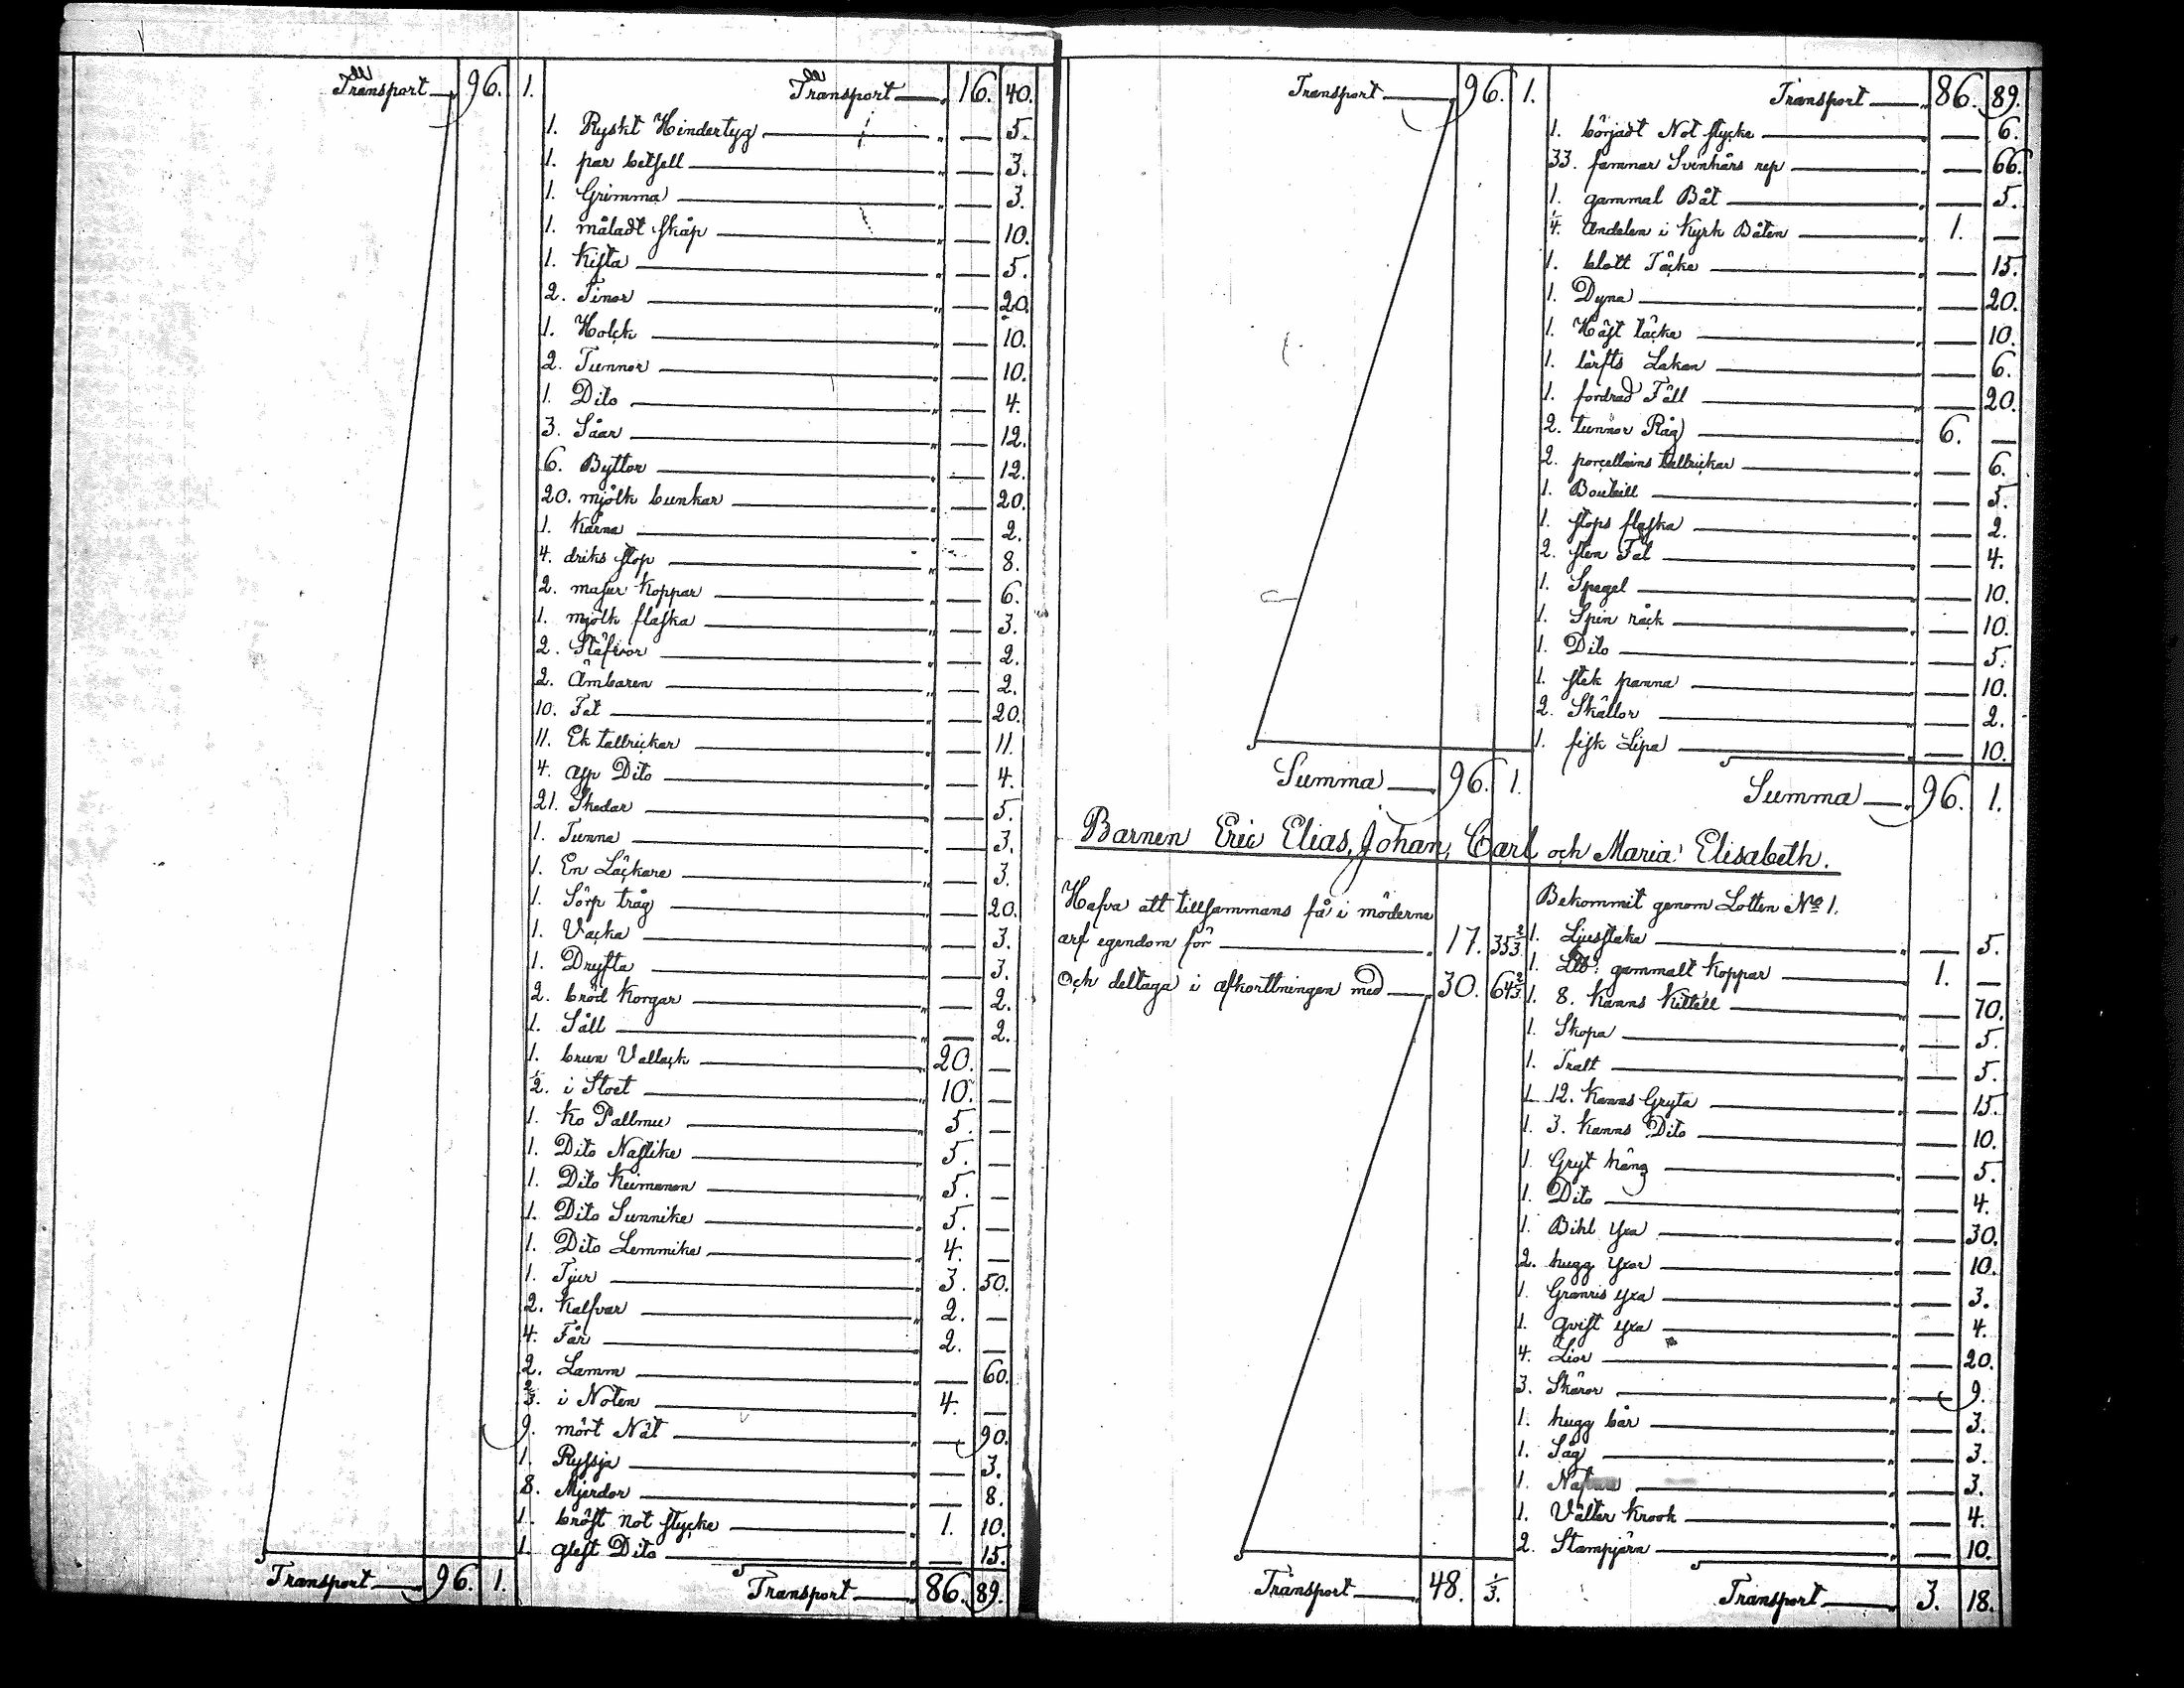 Transport 96. 1.
Transport 16. 40.
1. Ryskt Hindertyg — 5.
1. par betsell — 3.
1. Grimma — 3.
1. måladt skåp — 10.
1. Kista — 5.
2. Tinor — 20.
1. Holck — 10.
2. Tunnor — 10.
1. Dito — 4.
3. Såar — 12.
6. Byttor — 12.
20. mjölk bunkar — 20.
1. Kärna — 2.
4. driks stop — 8.
2. masur Koppar — 6.
1. mjölk flaska — 3.
2. Stäfvor — 2.
2. Ämbaren — 2.
10. Fat — 20.
11. Ek tallrickar — 11.
4. asp Dito — 4.
21. Skedar — 5.
1. Tunna — 3.
1. En Läckare — 3.
1. Sörp tråg — 20.
1. Vacka — 3.
1. Dryfta — 3.
2. bröd Korgar — 2.
1. Såll — 2.
1. brun Vallack 20. —
1/2. i Stoet 10. —
1. Ko Pallmu 5. —
1. Dito Nastike 5. —
1. Dito Keimanen 5. —
1. Dito Sunnike 5. —
1. Dito Lemmike 4. —
1. Tjur 3. 50.
2. Kalfvar 2. —
4. Får 2. —
2. Lamm — 60.
2/3. i Noten 4. —
9. mört Nät — 90.
1. Ryssja — 3.
8. Mjerdor — 8.
1. bröst not stycke 1. 10.
1. glest Dito — 15.
Transport 96. 1.
Transport 86. 89.
Transport 96. 1.
Transport 86. 89.
1. börjadt Not stycke — 6.
33. famnar Svinhårs rep — 66.
1. gammal Båt — 5.
1/4. Andelen i Kyrk Båten 1. —
1. blott Täcke — 15.
1. Dyna — 20.
1. Häst täcke — 10.
1. lärfts Lakan — 6.
1. fordrad Fäll — 20.
2. tunnor Råg 6. —
2. porcellains tallrickar — 6.
1. Bouteill — 5.
1. stops flaska — 2.
2. sten Fat — 4.
1. Spegel — 10.
1. Spin råck — 10.
1. Dito — 5.
1. stek panna — 10.
2. Skällor — 2.
1. fisk Lipa — 10.
Summa 96. 1.
Summa 96. 1.
Barnen Eric Elias, Johan, Carl och Maria Elisabeth.
Hafva att tillsammans få i möderne
arf egendom för 17. 35 2/3
Och deltaga i afkorttningen med 30. 64 2/3
Bekommit genom Lotten No 1.
1. Ljusstake — 5.
1. L℔: gammalt Koppar 1. —
1. 8. Kanns Kittell — 70.
1. Skopa — 5.
1. Tratt — 5.
1. 12. Kanns Gryta — 15.
1. 3. Kanns Dito — 10.
1. Gryt häng — 5.
1. Dito — 4.
1. Bihl yxa — 30.
2. hugg yxor — 10.
1. Granris yxa — 3.
1. qvist yxa — 4.
4. Lior — 20.
3. Skäror — 9.
1. hugg bår — 3.
1. Såg — 3.
1. — 3.
1. Välter Krook — 4.
2. Stampjärn — 10.
Transport 48. 1/3.
Transport 3. 18.